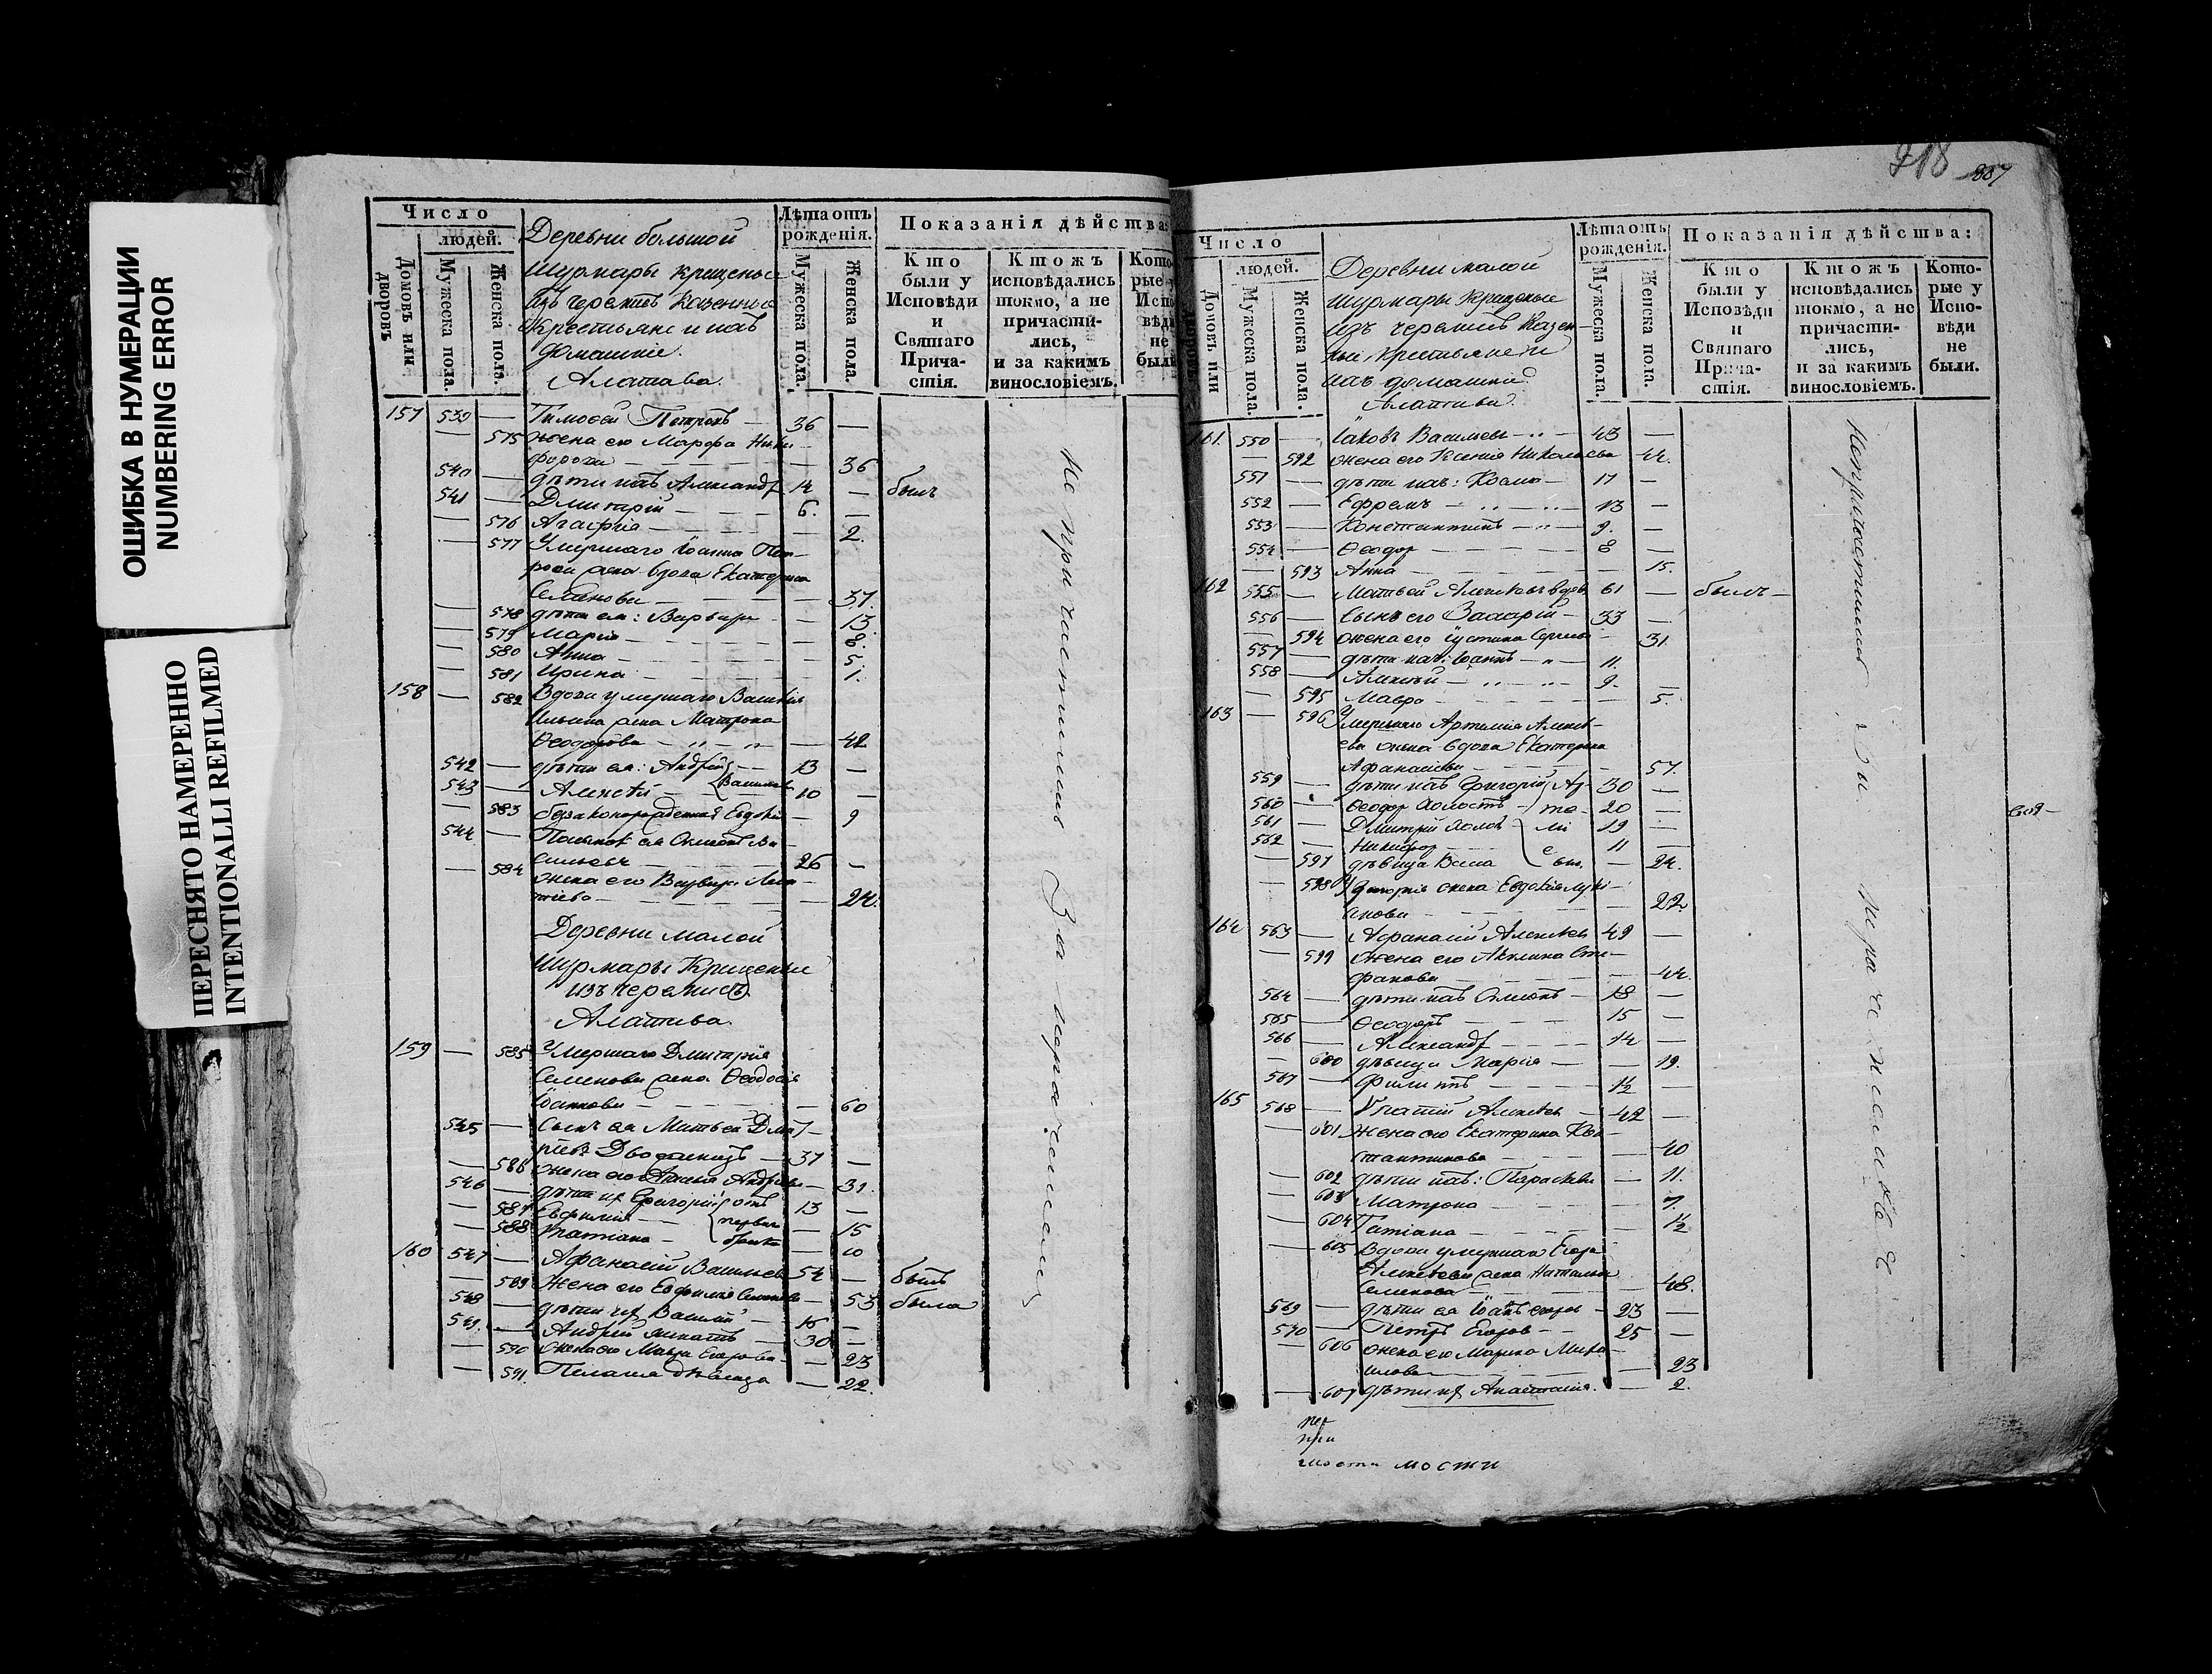 ОШИБКА В НУМЕРАЦИИ
NUMBERING ERROR
ПЕРЕСНЯТО НАМЕРЕННО
INTENTIONALLI REFILMED
Число
людей.
Домовъ или дворовъ
Мужеска пола.
Женска пола.
Деревни большой
Шурмары крещеные
Изъ черемисъ Казенные
Крестьяне и ихъ
домашніе.
Алатаева.
Лѣта отъ рожденія.
Мужеска пола.
Женска пола.
Показанія дѣйства:
Кто были у Исповѣди и Святаго Причастія.
Ктожъ исповѣдались токмо, а не причастились, и за какимъ винословіемъ.
157 539 — Тимоѳей Петровъ — 36 —
— 575 жена его Марфа Ники-
форова — — 36
540 — дѣти ихъ Александр 14 — былъ
541 — Дмитрій — 6. —
— 576 Агафія — — 2.
— 577 Умершаго Іоанна Пет-
рова жена вдова Екатерина
Семенова — — 37.
— 578 дѣти ея: Варвара — 13
— 579 Марія — — 8.
— 580 Анна — — 5
— 581 Ирина — — 1.
158 — 582 Вдова умершаго Василія
Ильина жена Матрона
Ѳеодорова — — 42
542 — дѣти ея: Андрей — 13 —
543 — Алексѣй — Васильев 10 —
— 583 беззаконорожденная Евдокія — 9
544 —
сильевъ — 26 —
— 584 жена его Варвара
— 24.
Деревни малой
Шурмары Крещеные
изъ черемисъ
Алатаева.
159 — 585 Умершаго Дмитрія
Семенова жена Ѳеодосія
Іоаннова — — 60
545 — Сынъ ея Матвей Дмит-
ріевъ Двоеженецъ — 37 —
— 586 жена его Андреева — 31.
546 — дѣти их Григорій отъ 13 —
— 587 Евфимія — перваго — 15
— 588 Татіана — брака — 10
160 547 — Афанасій Васильев 54 — былъ
— 589 Жена его Евфимія Семенова — 53 была
548 — дѣти их Василій — 16 —
549. — Андрей женатъ — 30 —
— 590 жена его Мавра Егорова — 23
— 591. Пелагія дѣвица — 22.
Не причастились За
718 807
Число
людей.
Домовъ или
Мужеска пола.
Женска пола.
Деревни малой
Шурмары Крещеные
изъ черемисъ Казен-
ные крестьяне и
ихъ домашніе
Алатаева.
Лѣта отъ рожденія.
Мужеска пола.
Женска пола.
Показанія дѣйства:
Кто были у Исповѣди и Святаго Причастія.
Ктожъ исповѣдались токмо, а не причастились, и за какимъ винословіемъ.
Которые у Исповѣди не были.
161. 550 — Іаковъ Васильевъ — 43 —
— 592 жена его Ксенія Николаева 44.
551 — дѣти ихъ: Косма — 17 —
552 — Ефремъ — 13 —
553 — Константинъ — 9. —
554 — Ѳеодор — 8 —
— 593 Анна — — 15.
162 555 — Матвей Алексѣевъ вдовъ 61 — былъ —
556 — Сынъ его Захарій — 33 —
— 594 жена его Іустина Сергиева — 31.
557 — дѣти ихъ: Іоаннъ — 11.
558 — Алексѣй — 9. —
— 595 Мавра — — 5.
163 — 596 Умершаго Артемія Алексѣ-
ева жена вдова Екатерина
Афанасьева — — 57.
559 — дѣти ихъ Григорій Ар- 30 —
560 — Ѳеодор холостъ — те- 20 —
561 — Дмитрій холост ми 19 —
562 — Никифор — е 11 —
— 597 дѣвица Васса вы. — 24.
— 598 Григорія жена Евдокія Луки-
анова — 22.
164 563 — Афанасій Алексѣев 49 —
— 599 Жена его Акилина Сте-
фанова — — 44.
564 — дѣти ихъ Симеонъ — 18 —
565 — Ѳеодоръ — 15 —
566 — Александр — 14 —
— 600 дѣвица Марія — — 19.
567 — Филиппъ — 1½ —
165 568 — Ипатій Алексѣев — 42 —
— 601 жена его Екатерина Кон-
стантинова — — 40
— 602 дѣти ихъ: Параскева — 11.
— 603 Матрона — 7.
— 604 Татіана — — 1½
— 605 Вдова умершаго Егора
Алексѣева жена Наталья
Семенова — — 48.
569 — дѣти ея Іоанъ егоров — 23 —
570 — Петръ Егоров — 25 —
— 606 жена его Марина Миха-
илова — — 23
— 607 дѣти их Анастасія. — 2.
Непричастились За
при
мости